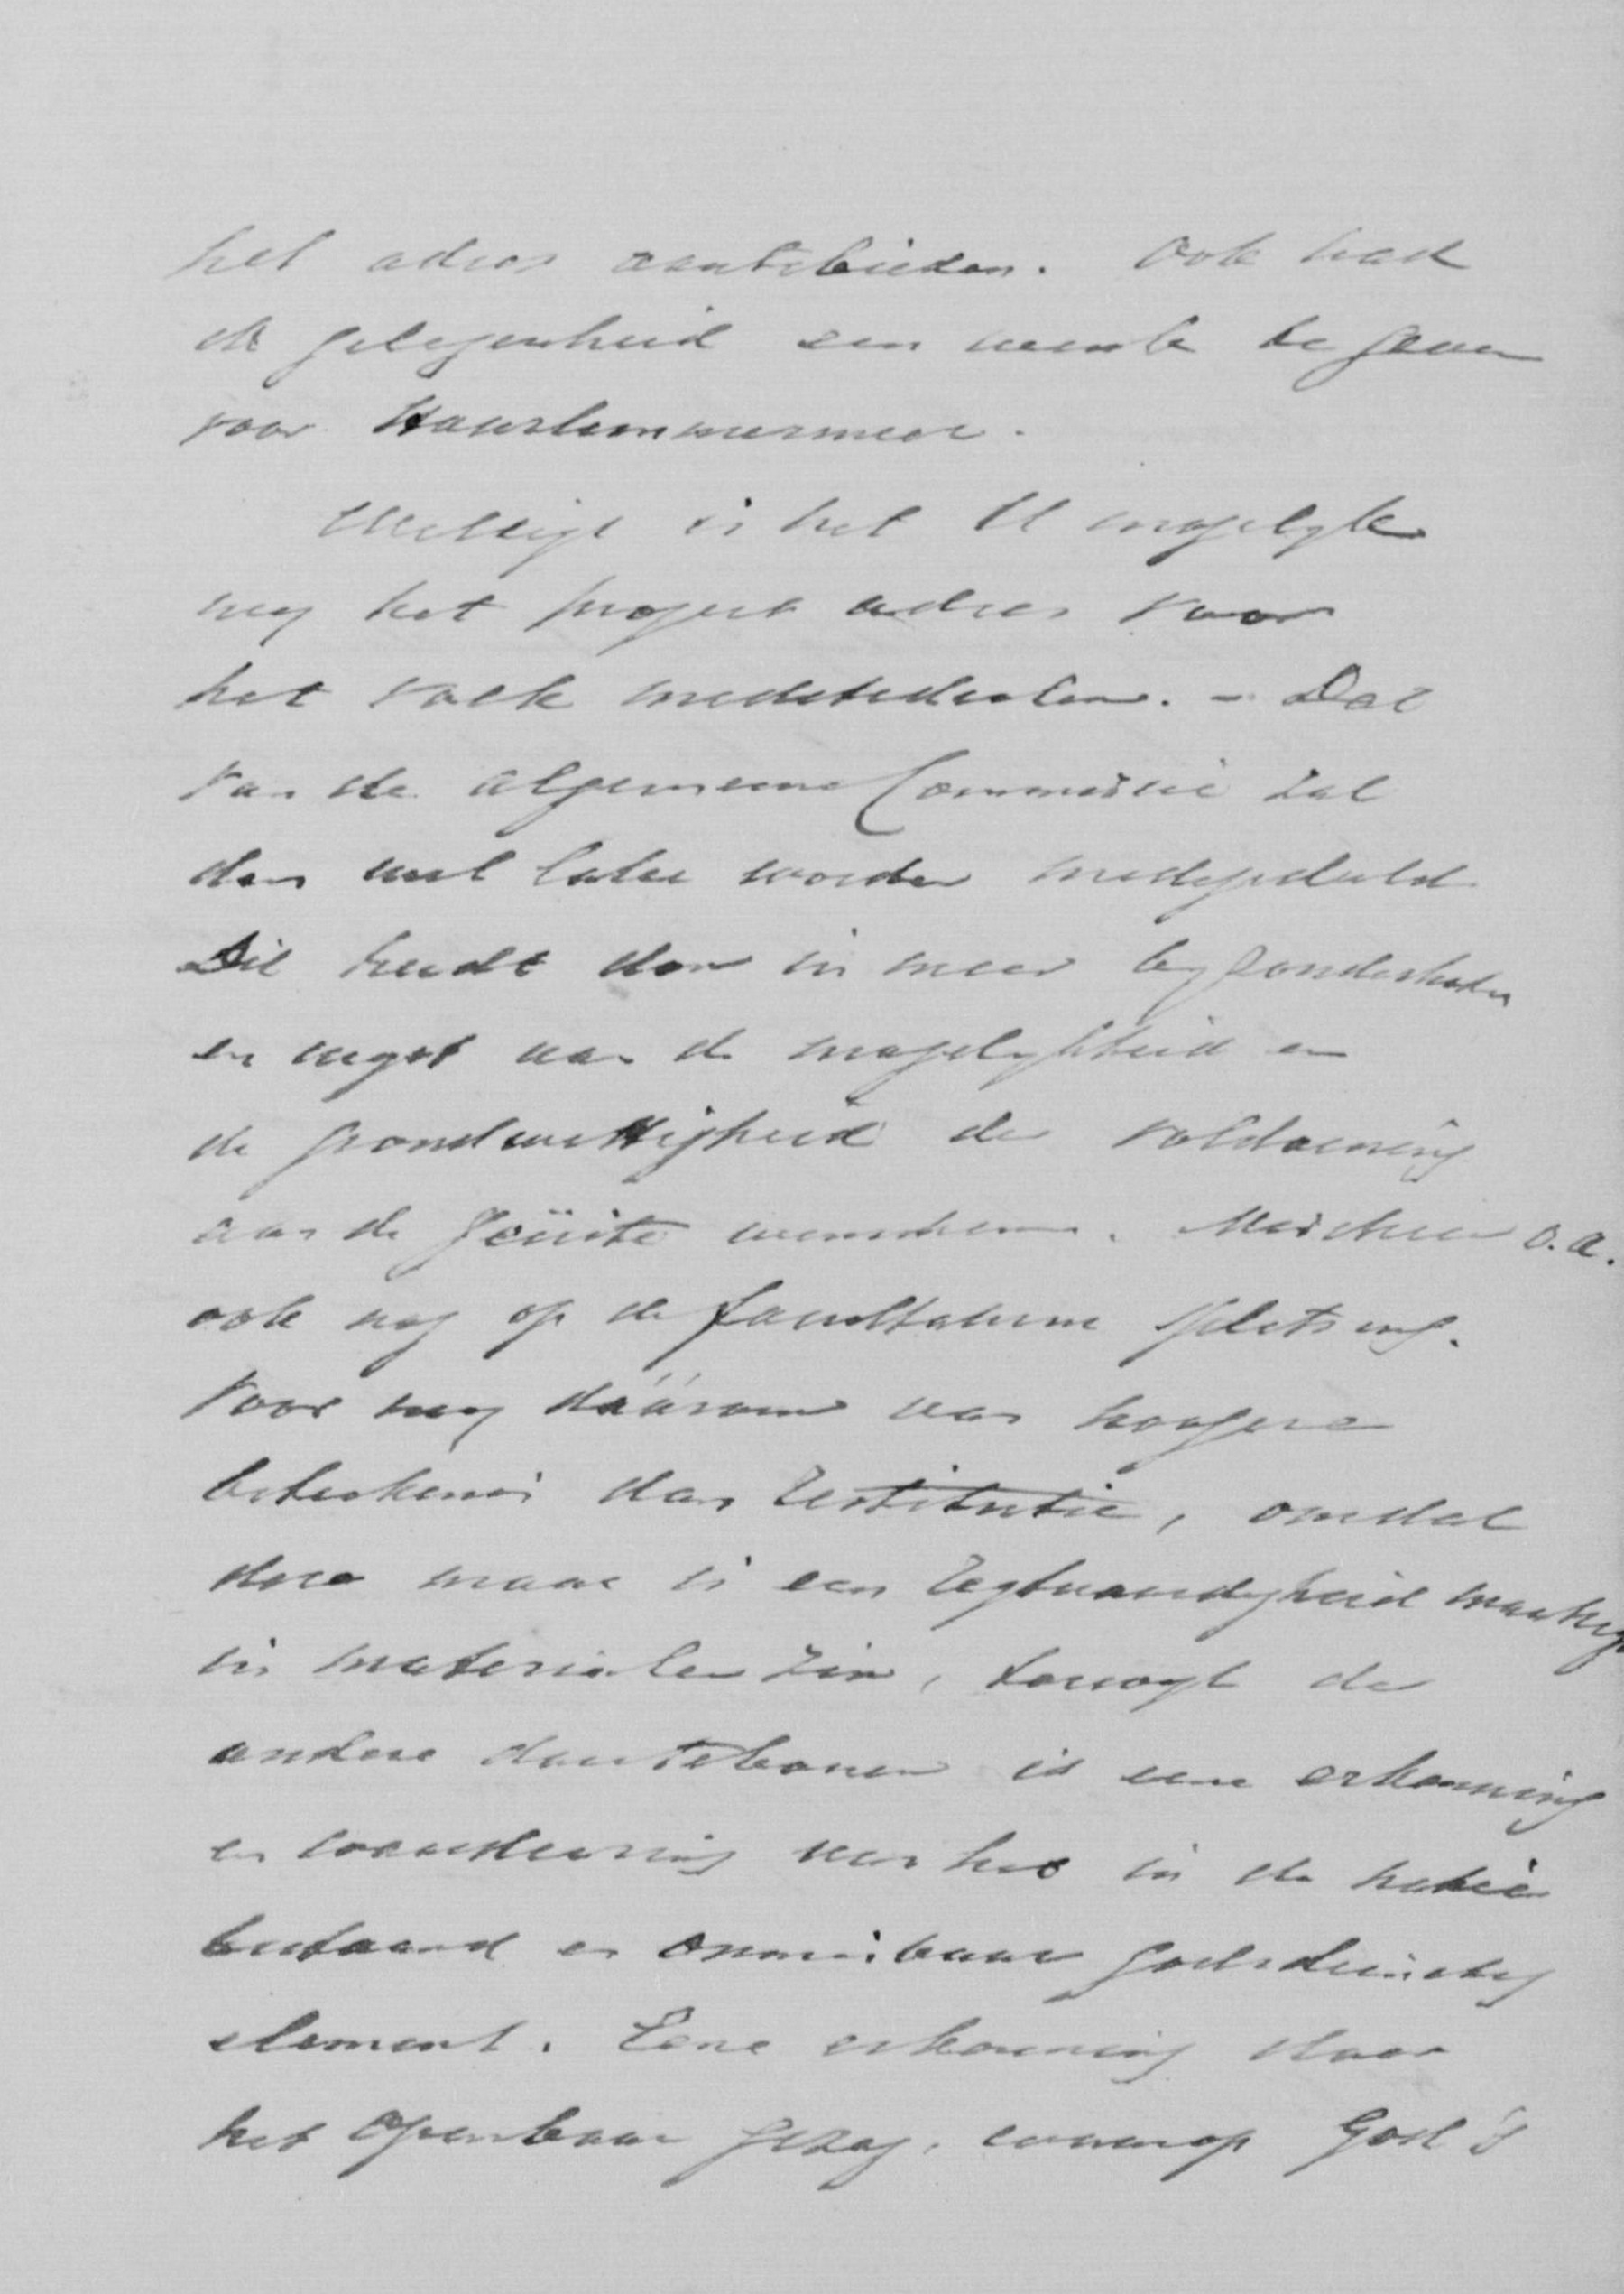 het adres aantebieden. Ook had
ik gelegenheid een wenk te geven
voor Haarlemmermeer.
Wellig is het U mogelyk
my het project adres voor
het volk medetedeelen. - Dat
van de algemeene Commissie zal
dan wel later worden medegedeeld
Dit treedt dan in meer byzonderheden
en wyst aan de mogelykheid en
de grondwettigheid der voldoening
aan de geuite wenschen. Misschien o.a.
ook nog op de facultatieve splitsing.
Voor my dáárom van hoogere
beteekenis dan restitutie, omdat
deze maar is een regtvaardigheid
in materielen zin, terwyl de
andere daarteboven is eene erkenning
en waardeering van het in de natie
bestaand en onmisbaar godsdienstig
element. Eene erkenning door
het openbaar gezag, waarop God's